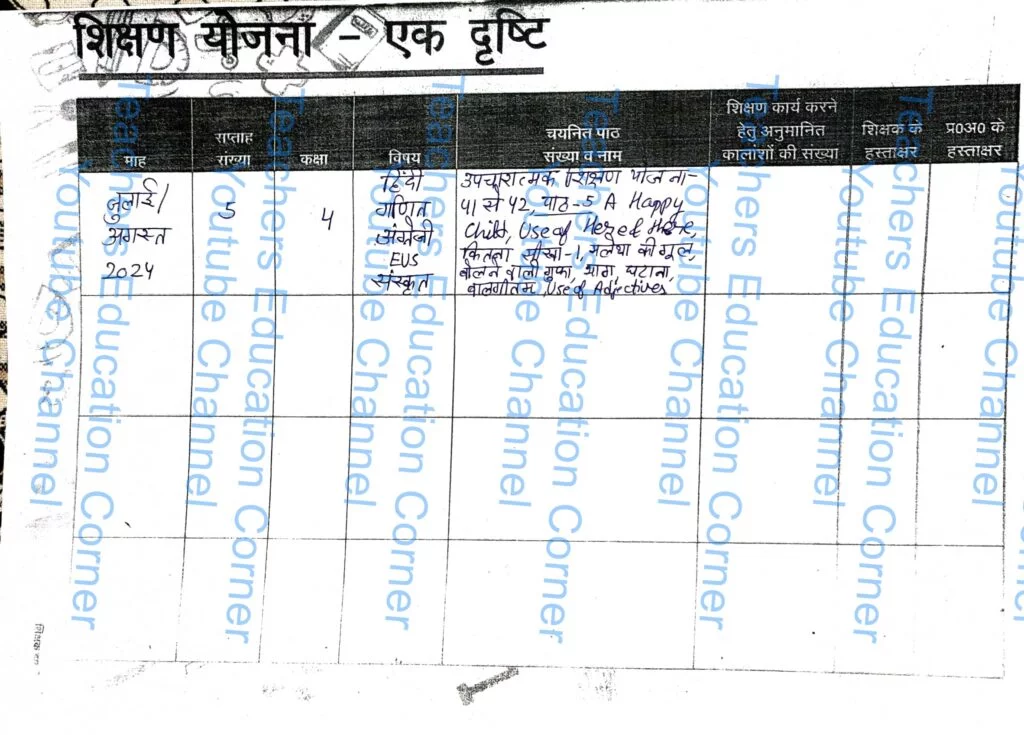 शिक्षण योजना – एक दृष्टि
माह
सप्ताह
संख्या
कक्षा
विषय
चयनित पाठ
संख्या व नाम
शिक्षण कार्य करने
हेतु अनुमानित
कालांशों की संख्या
शिक्षक के
हस्ताक्षर
प्र0अ0 के
हस्ताक्षर
जुलाई/
अगस्त
2024
5
4
हिंदी
गणित
अंग्रेजी
EVS
संस्कृत
उपचारात्मक शिक्षण योजना-
41 से 42, पाठ-5 A Happy
Child, Use of Here & There,
कितना सीखा-1, मलेथा की गूल,
बोलने वाली गुफा, भाग, घटाना,
बालगीतम, Use of Adjectives
Teachers Education Corner
Youtube Channel
Teachers Education Corner
Youtube Channel
Teachers Education Corner
Youtube Channel
Teachers Education Corner
Youtube Channel
Teachers Education Corner
Youtube Channel
Teachers Education Corner
Youtube Channel